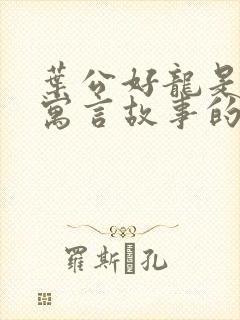 葉公好龍是
寓言故事的
羅斯 孔
HANDSOME